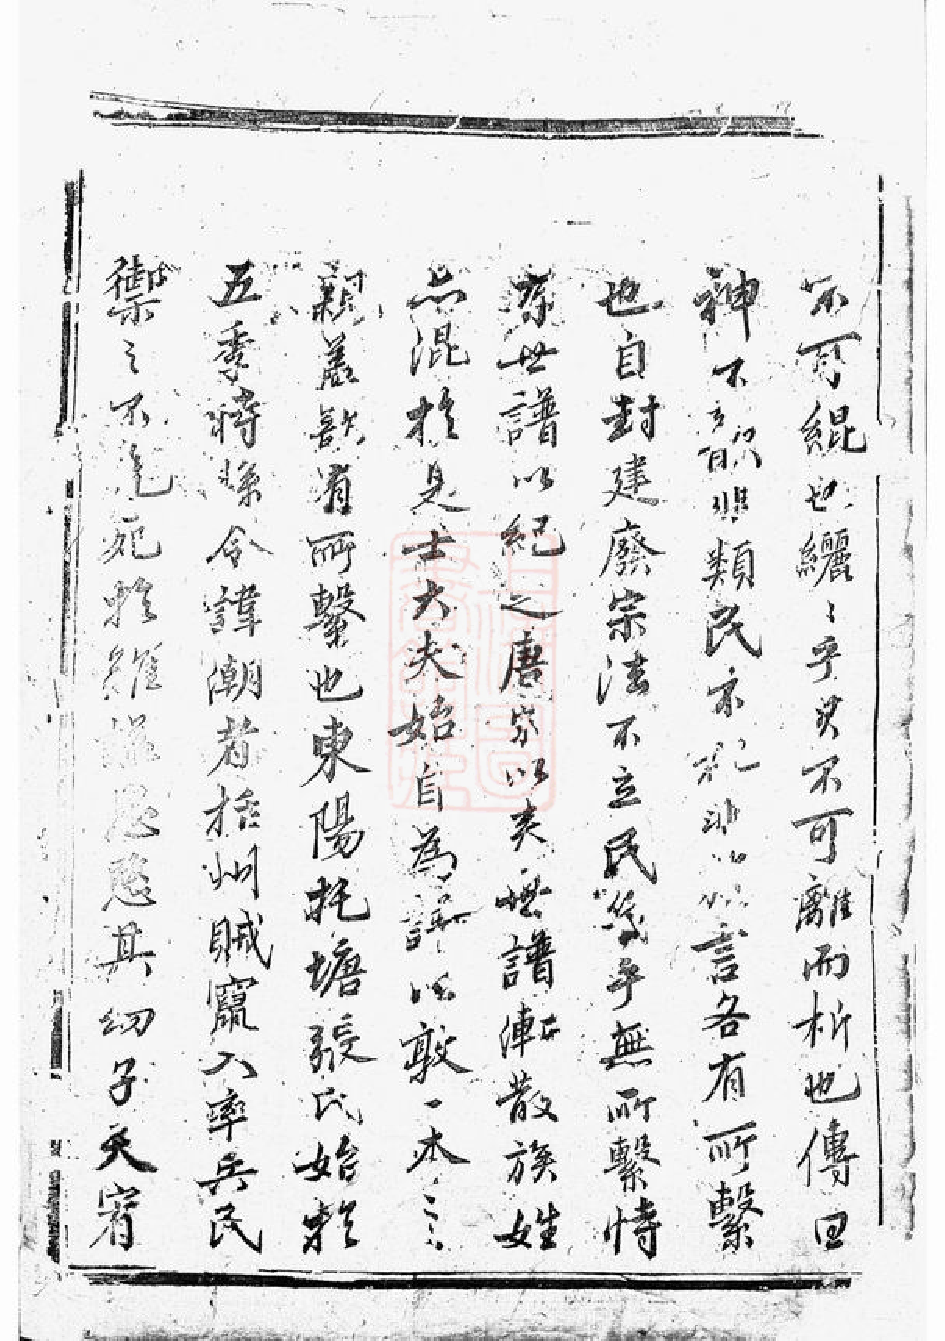 不可緄也纚〻乎其不可離而析也傳曰
神不歆非類民不祀非以言各有所繫
也自封建廢宗法不立民幾乎無所繫恃
世譜以紀之唐家以來世譜漸散族姓
亦混於是士大夫始自為譜以敦一本之
親蓋欲有所繫也東陽托塘張氏始於
五季時縣令諱潮者括州賊竄入率兵民
禦之不克死於難其幼子天宥